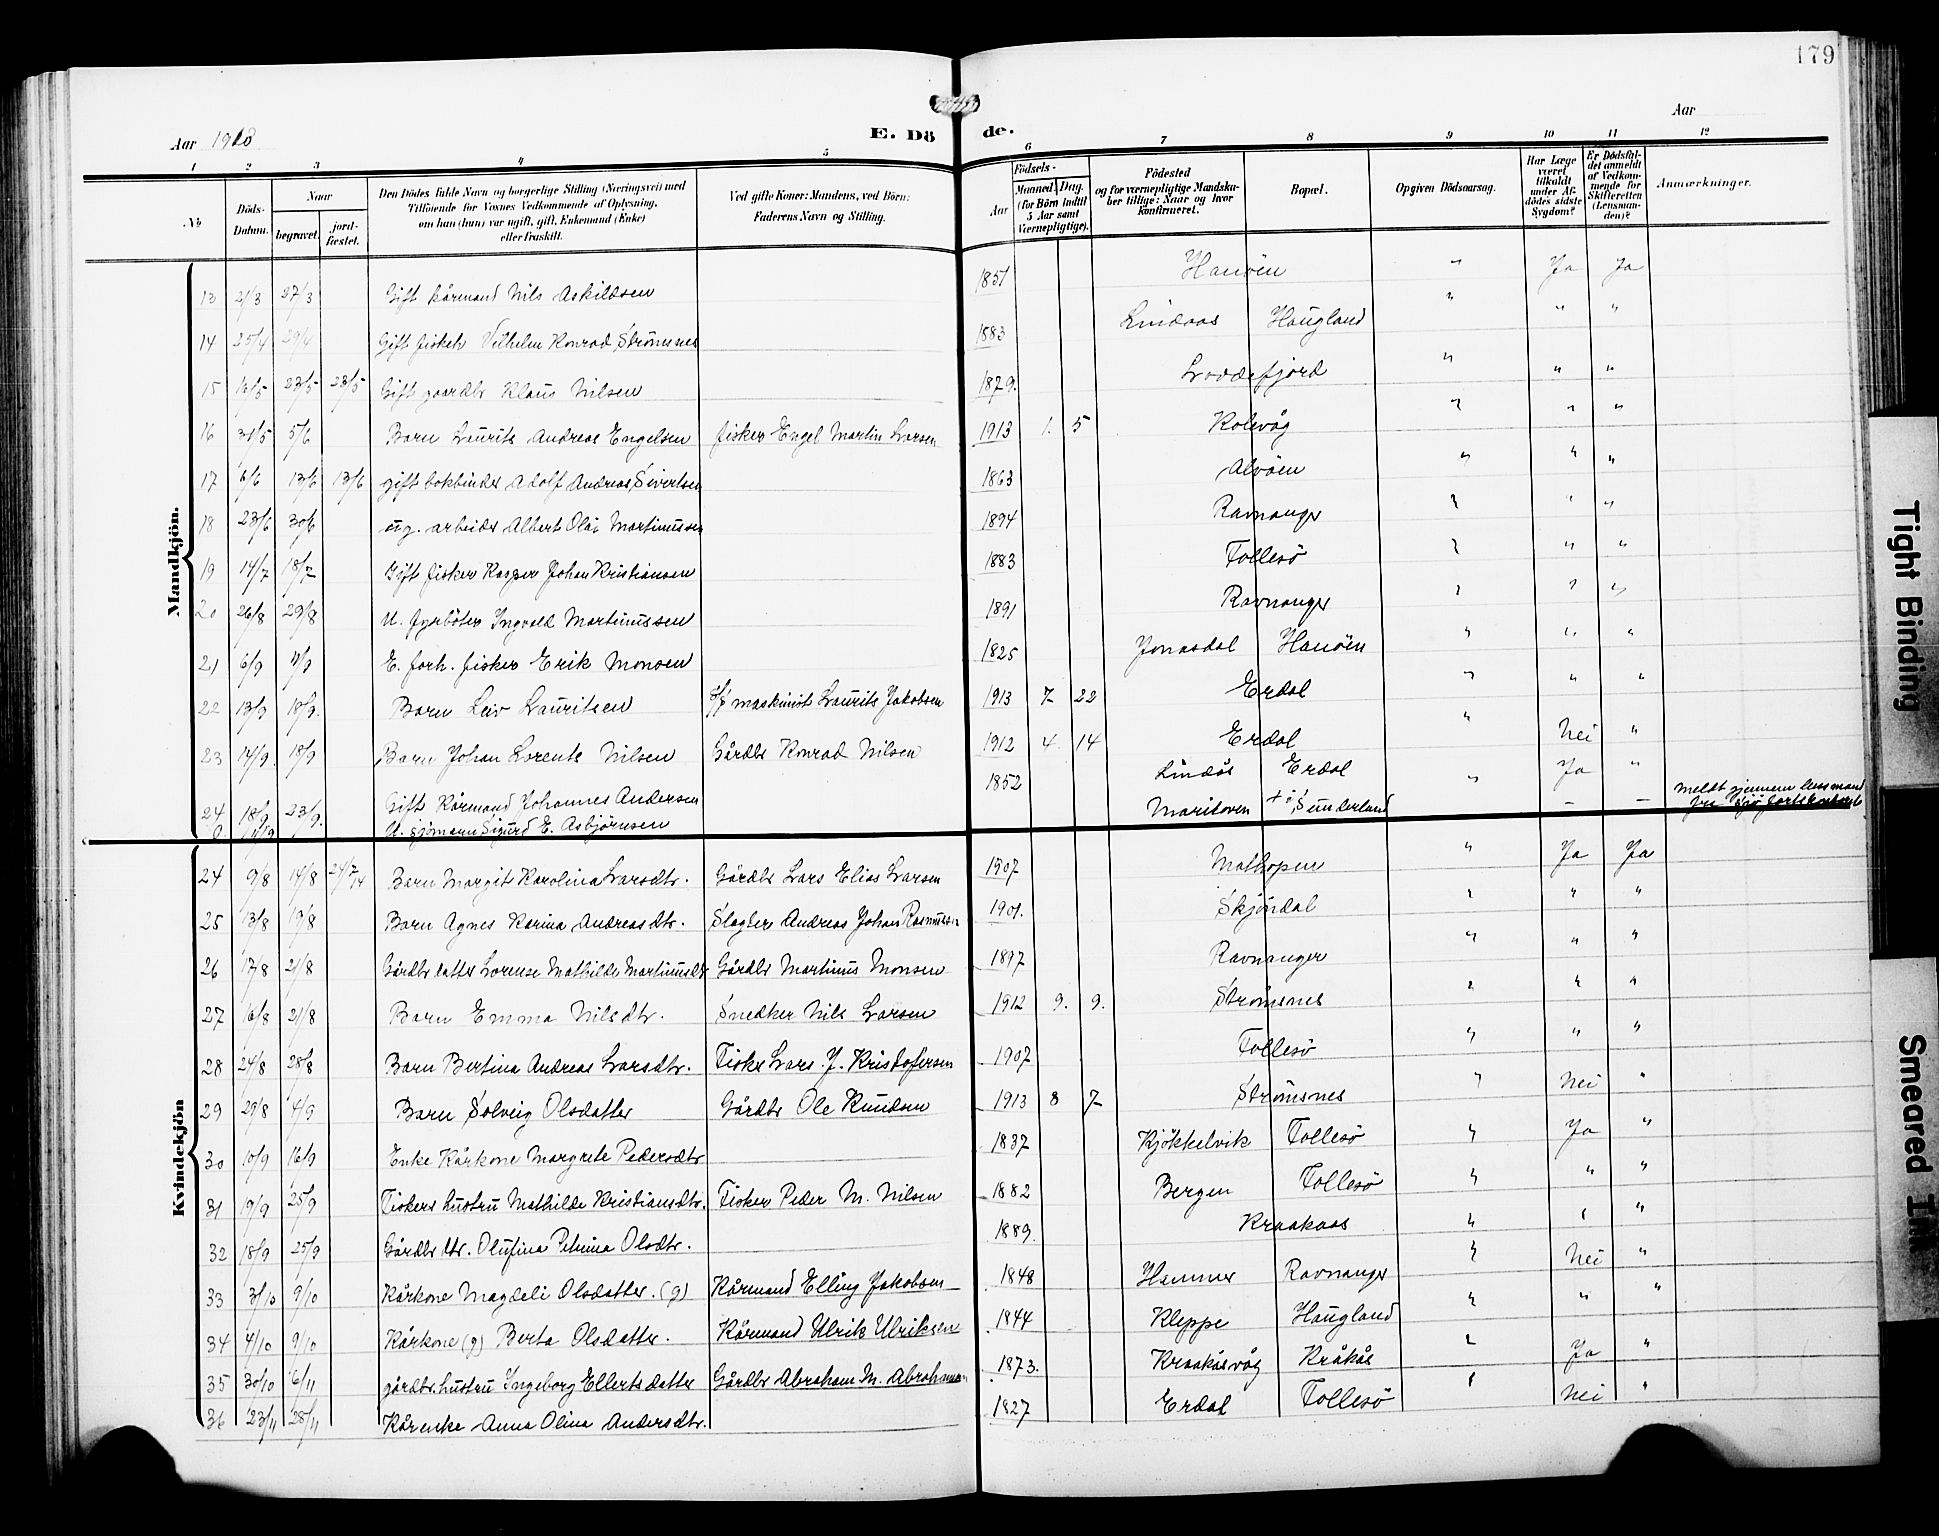 179
Aar 1913
E. Dö de.
Aar
1 2 3 4 5 6 7 8 9 10 11 12
No
Döds-Datum.
Naar
begravet.
jord-fæstet.
Den Dödes fulde Navn og borgerlige Stilling (Næringsvei) med
Tilföiende for Voxnes Vedkommende af Oplysning,
om han (hun) var ugift, gift, Enkemand (Enke)
eller fraskilt.
Ved gifte Koner: Mandens, ved Börn:
Faderens Navn og Stilling.
Födsels-
Aar
Maaned. Dag.
(for Börn indtil
5 Aar samt
Værnepligtige).
Födested
og for værnepligtige Mandska-
ber tillige: Naar og hvor
konfirmeret.
Bopæl.
Opgiven Dödsaarsag.
Har Læge
været
tilkaldt
under Af-
dödes sidste
Sygdom?
Er Dödsfal-
det anmeldt
af Vedkom-
mende for
Skifteretten
(Lensman-
den)?
Anmærkninger.
Mandkjön.
13 21/3 27/3 Gift kårmand Nils Askildsen 1851 Hanöen " Ja Ja
14 25/4 29/4 Gift fisker Vilhelm Konrad Strömsnes 1883 Lindaas Haugland " " "
15 18/5 23/5 23/5 Gift gaardbr Klaus Nilsen 1879. Loddefjord " " "
16 31/5 5/6 Barn Laurits Andreas Engelsen fisker Engel Martin Larsen 1913 1. 5 Kolevåg " " "
17 6/6 13/6 13/6 gift bokbinder Adolf Andreas Sivertsen 1863 Alvöen " " "
18 23/6 30/6 ug. arbeider Albert Olai Martinussen 1894 Ravnanger " " "
19 14/7 18/7 Gift fisker Kasper Johan Kristiansen 1883 Follesö " " "
20 26/8 29/8 U. fyrböter Ingvald Martinussen 1891 Ravnanger " " "
21 6/9 11/9 E. forh. fisker Erik Monsen 1825 Jonasdal Hanöen " " "
22 13/9 18/9. Barn Leiv Lauritsen maskinist Laurits Jakobsen 1913 7 22 Erdal " " "
23 14/9. 18/9 Barn Johan Lorents Nilsen Gårdbr Konrad Nilsen 1912 4. 14 Erdal " Nei "
24 18/9 23/9. Gift Kårmand Johannes Andersen 1852 Lindås Erdal " Ja "
U. sjömann Sigurd E. Asbjörnsen Maritoren + Sunderland – – Meldt gjennem lensmand
Kvindekjön
24 9/8 14/8 24/7 14 Barn Margit Karolina Larsdtr. Gårdbr Lars Elias Larsen 1907 Mathopen " Ja Ja
25 13/8 19/8 Barn Agnes Karina Andreasdtr. Slagter Andreas Johan Rasmussen 1901. Skjöndal " " "
26 17/8 21/8 Gårdbr datter Lorense Mathilde Martinusdtr Gårdbr Martinus Monsen 1897 Ravnanger " " "
27 16/8 21/8 Barn Emma Nilsdtr. Snedker Nils Larsen 1912 9. 9. Strömsnes " " "
28 24/8 28/8 Barn Bertina Andreas Larsdtr. Fisker Lars J. Kristofersen 1907 Follesö " " "
29 29/8 4/9 Barn Solveig Olsdatter Gårdbr Ole Knudsen 1913 8 7 Strömsnes " Nei "
30 10/9 16/9 Enke Kårkone Margrete Pedersdtr 1837 Kjökkelvik Follesö " Ja "
31 19/9 25/9 Fiskers hustru Mathilde Kristiansdtr. Fisker Peder M. Nilsen 1882 Bergen Follesö " " "
32 18/9 25/9 Gårdbr dtr. Olufina Petrina Olsdtr. 1889. Kraakaas " " "
33 3/10 9/10 Kårkone Magdeli Olsdatter. (g) Kårmand Elling Jakobsen 1848 Hammer Ravnanger " Nei "
34 4/10 9/10 Kårkone (g) Berta Olsdatter. Kårmand Ulrik Ulriksen 1844 Kleppe Haugland " " "
35 30/10 6/11 gårdbr. hustru Ingeborg Ellertsdatter Gårdbr Abraham M. Abrahamsen 1873. Kraakåsvåg Kråkås " Ja "
36 23/11 28/11 Kårenke Anna Olina Andersdtr. 1827 Erdal Follesö " Nei "
Tight Binding
Smeared Ink